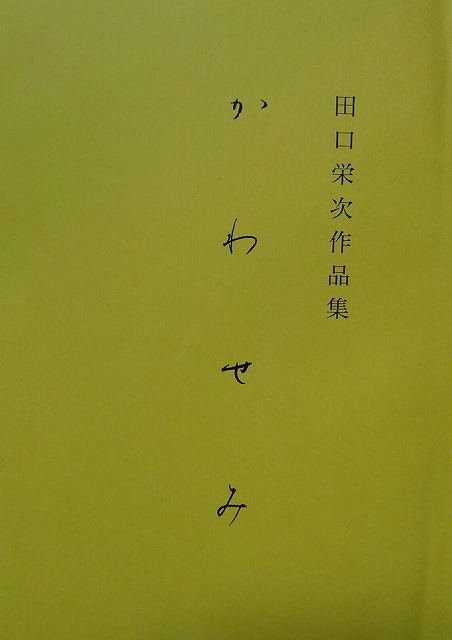 田口栄次作品集
かわせみ